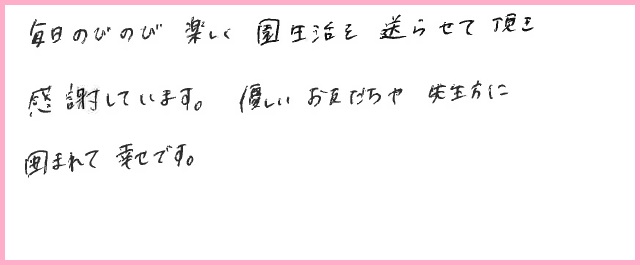 毎日のびのび 楽しく 園生活を 送らせて 頂き
感謝しています。 優しい お友だちや 先生方に
囲まれて 幸せです。